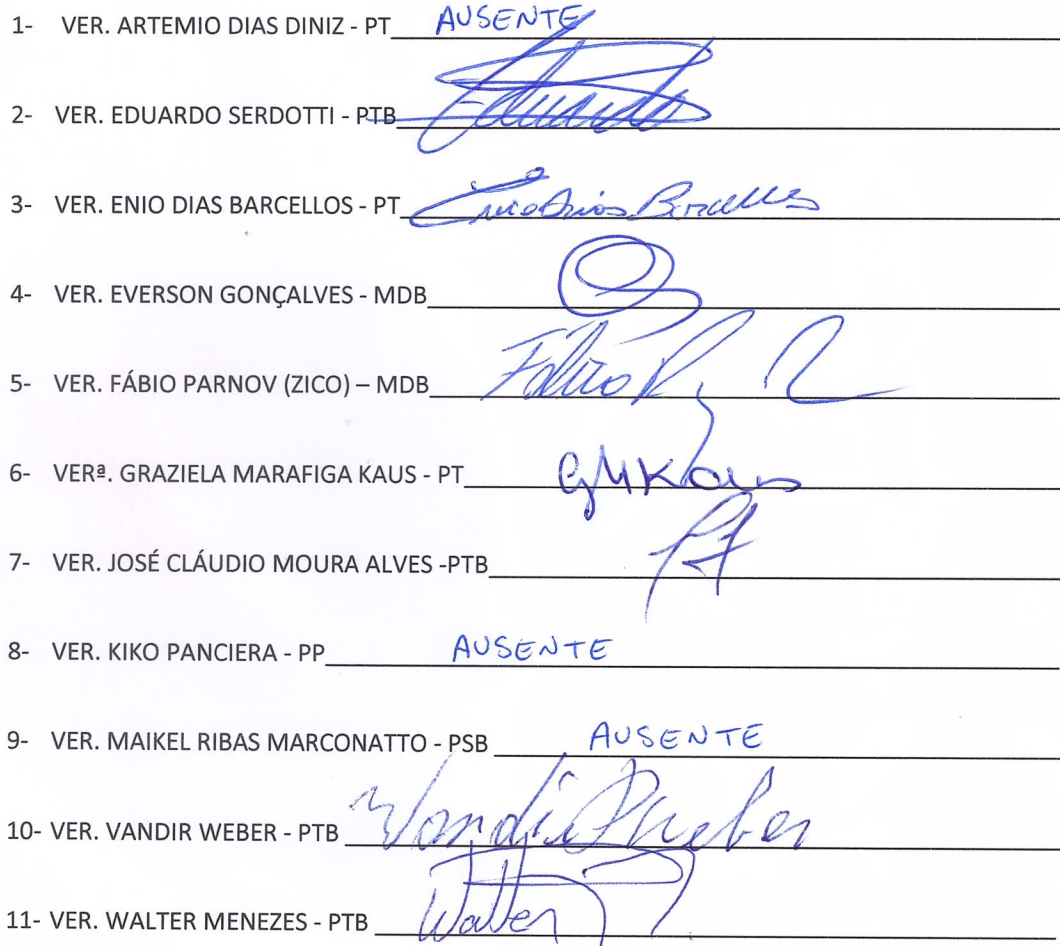 1- VER. ARTEMIO DIAS DINIZ - PT AUSENTE
2- VER. EDUARDO SERDOTTI - PTB Eduardo
3- VER. ENIO DIAS BARCELLOS - PT Enio Dias Barcellos
4- VER. EVERSON GONÇALVES - MDB
5- VER. FÁBIO PARNOV (ZICO) – MDB Fábio
6- VERª. GRAZIELA MARAFIGA KAUS - PT GMKaus
7- VER. JOSÉ CLÁUDIO MOURA ALVES -PTB
8- VER. KIKO PANCIERA - PP AUSENTE
9- VER. MAIKEL RIBAS MARCONATTO - PSB AUSENTE
10- VER. VANDIR WEBER - PTB Vandir Weber
11- VER. WALTER MENEZES - PTB Walter